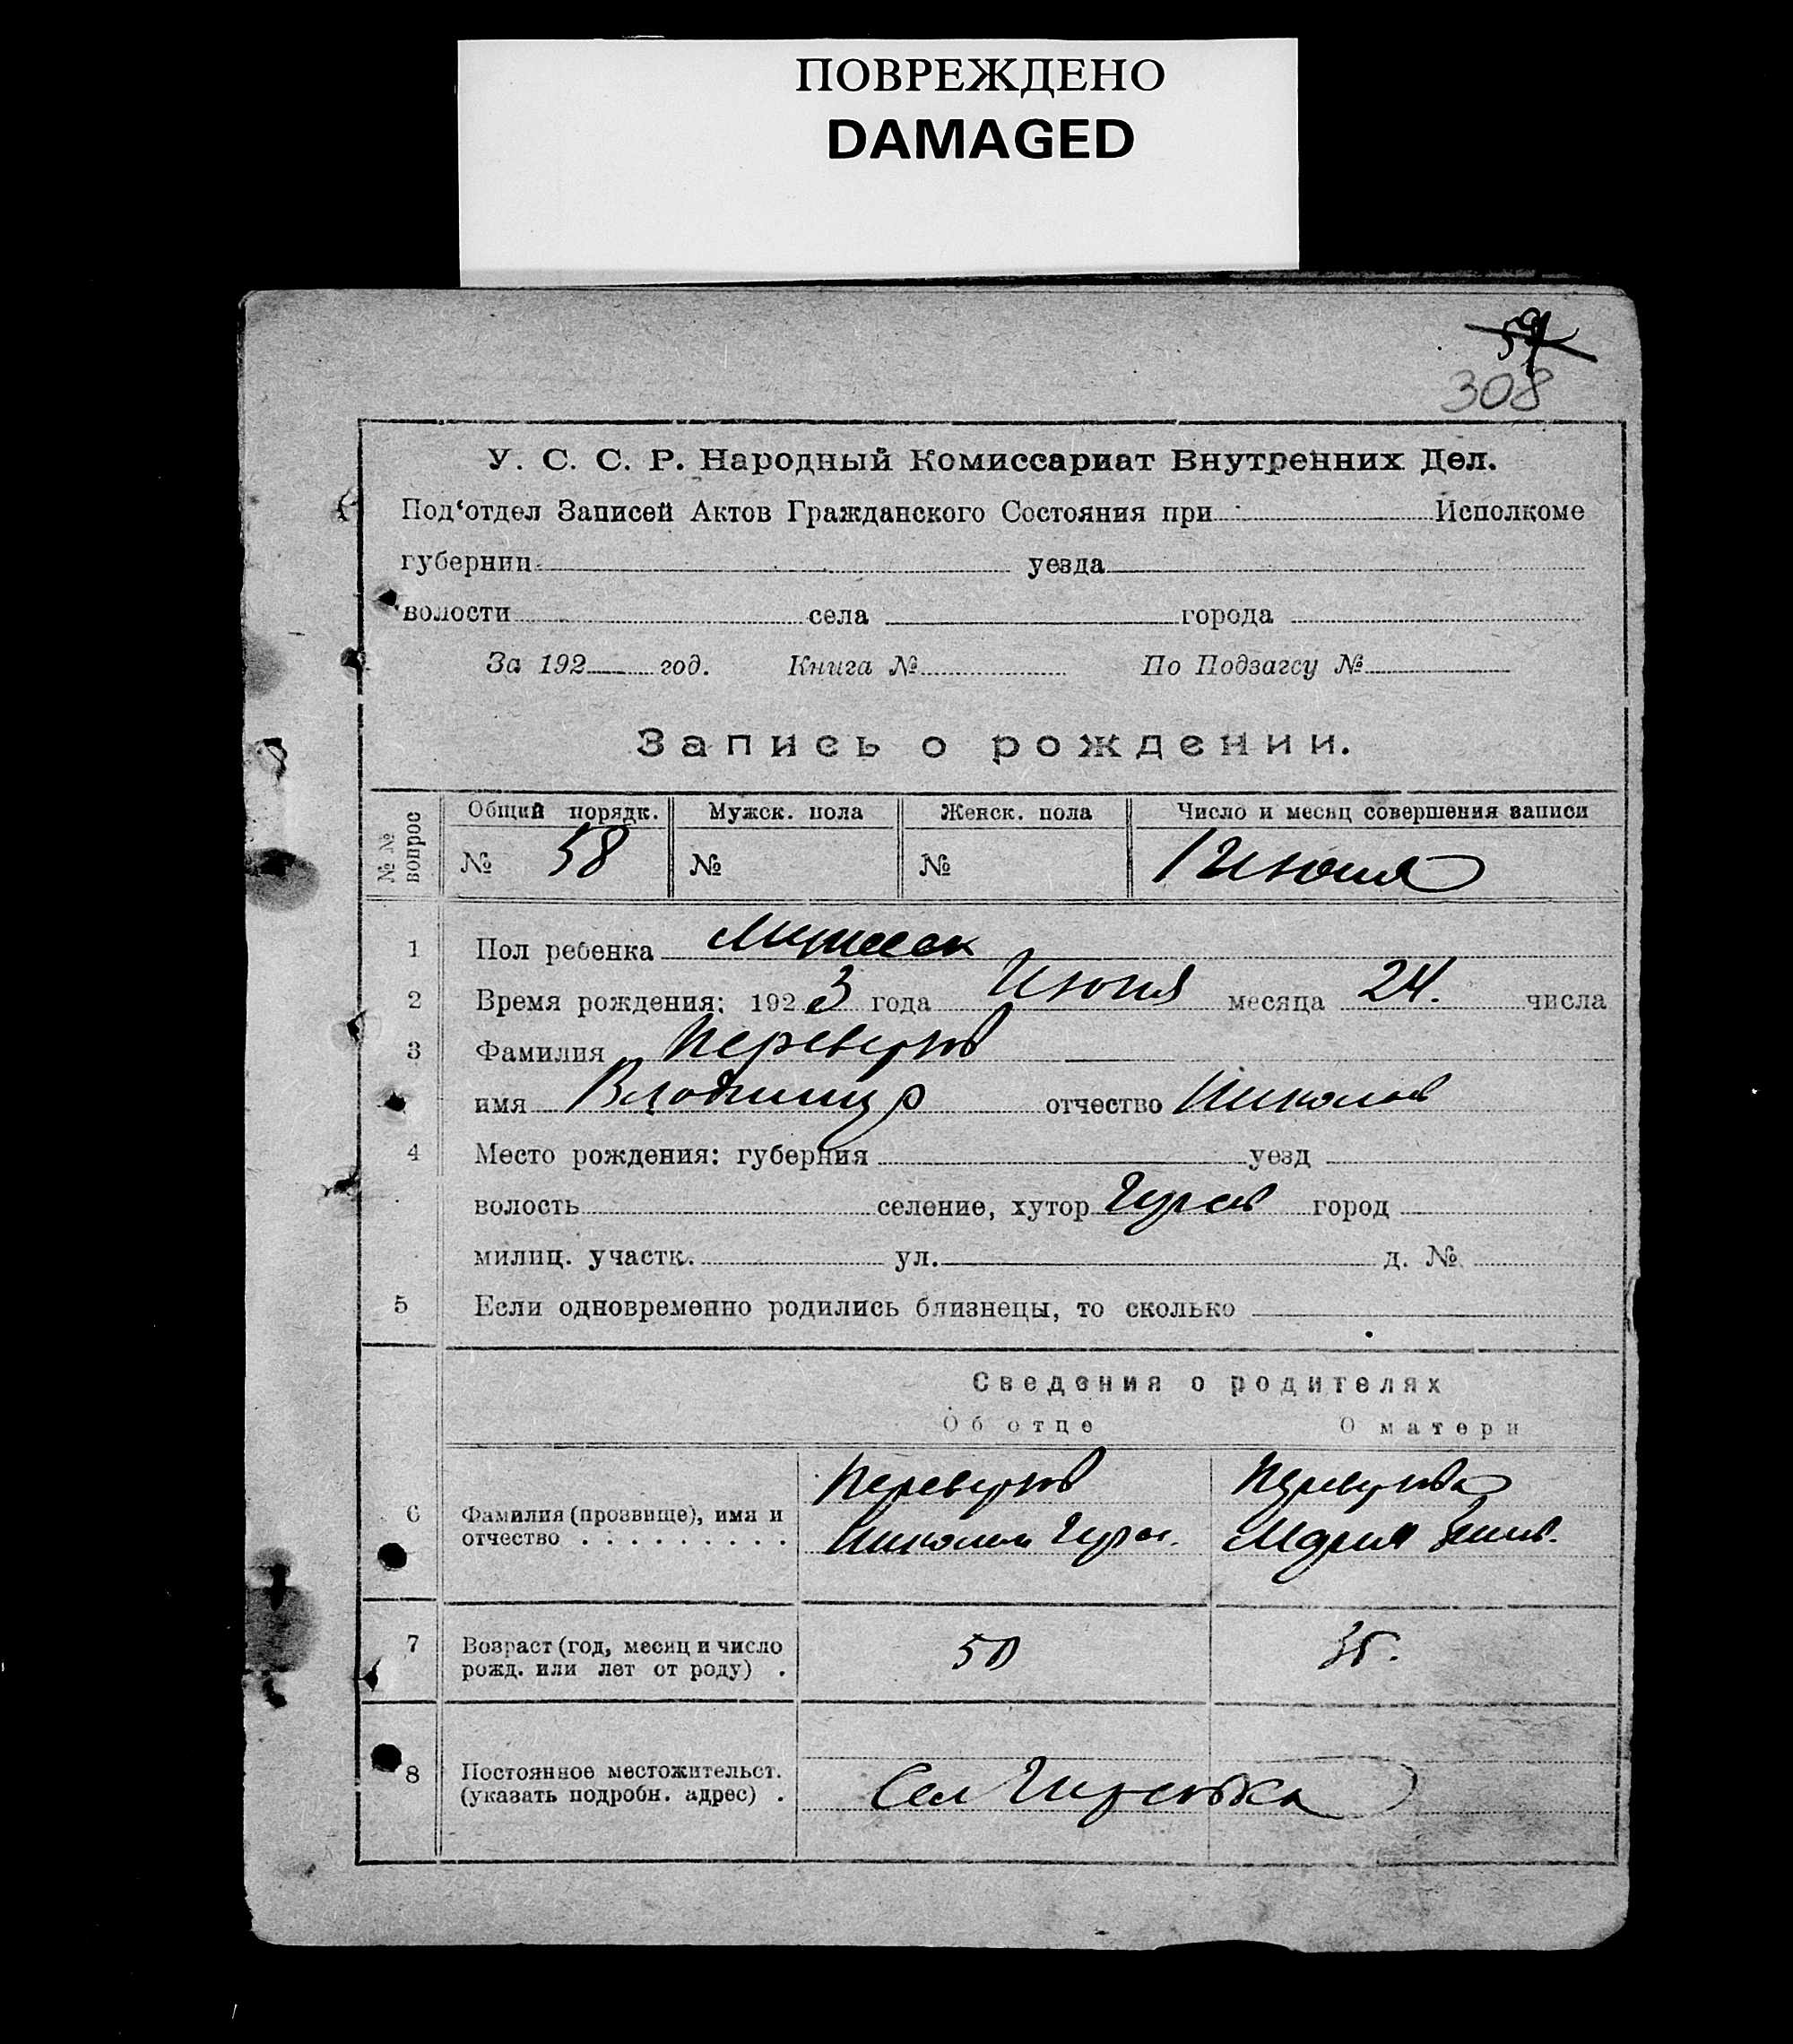 ПОВРЕЖДЕНО
DAMAGED
59
308
У. С. С. Р. Народный Комиссариат Внутренних Дел.
Под‘отдел Записей Актов Гражданского Состояния при Исполкоме
губернии уезда
волости села города
За 192 год. Книга № По Подзагсу №
Запись о рождении.
№№ вопрос
Общий порядк. Мужск. пола Женск. пола Число и месяц совершения записи
№ 58 № № 1 Июля
1 Пол ребенка Мужеск
2 Время рождения: 1923 года Июня месяца 24. числа
3 Фамилия
имя Владимир отчество Николаев
4 Место рождения: губерния уезд
волость селение, хутор город
милиц. участк. ул. д. №
5 Если одновременно родились близнецы, то сколько
Сведения о родителях
Об отце О матери
6 Фамилия (прозвище), имя и
отчество . . . . . . . . . Николай Мария
7 Возраст (год, месяц и число
рожд. или лет от роду) . 50 35.
8 Постоянное местожительст.
(указать подробн. адрес) . Сел